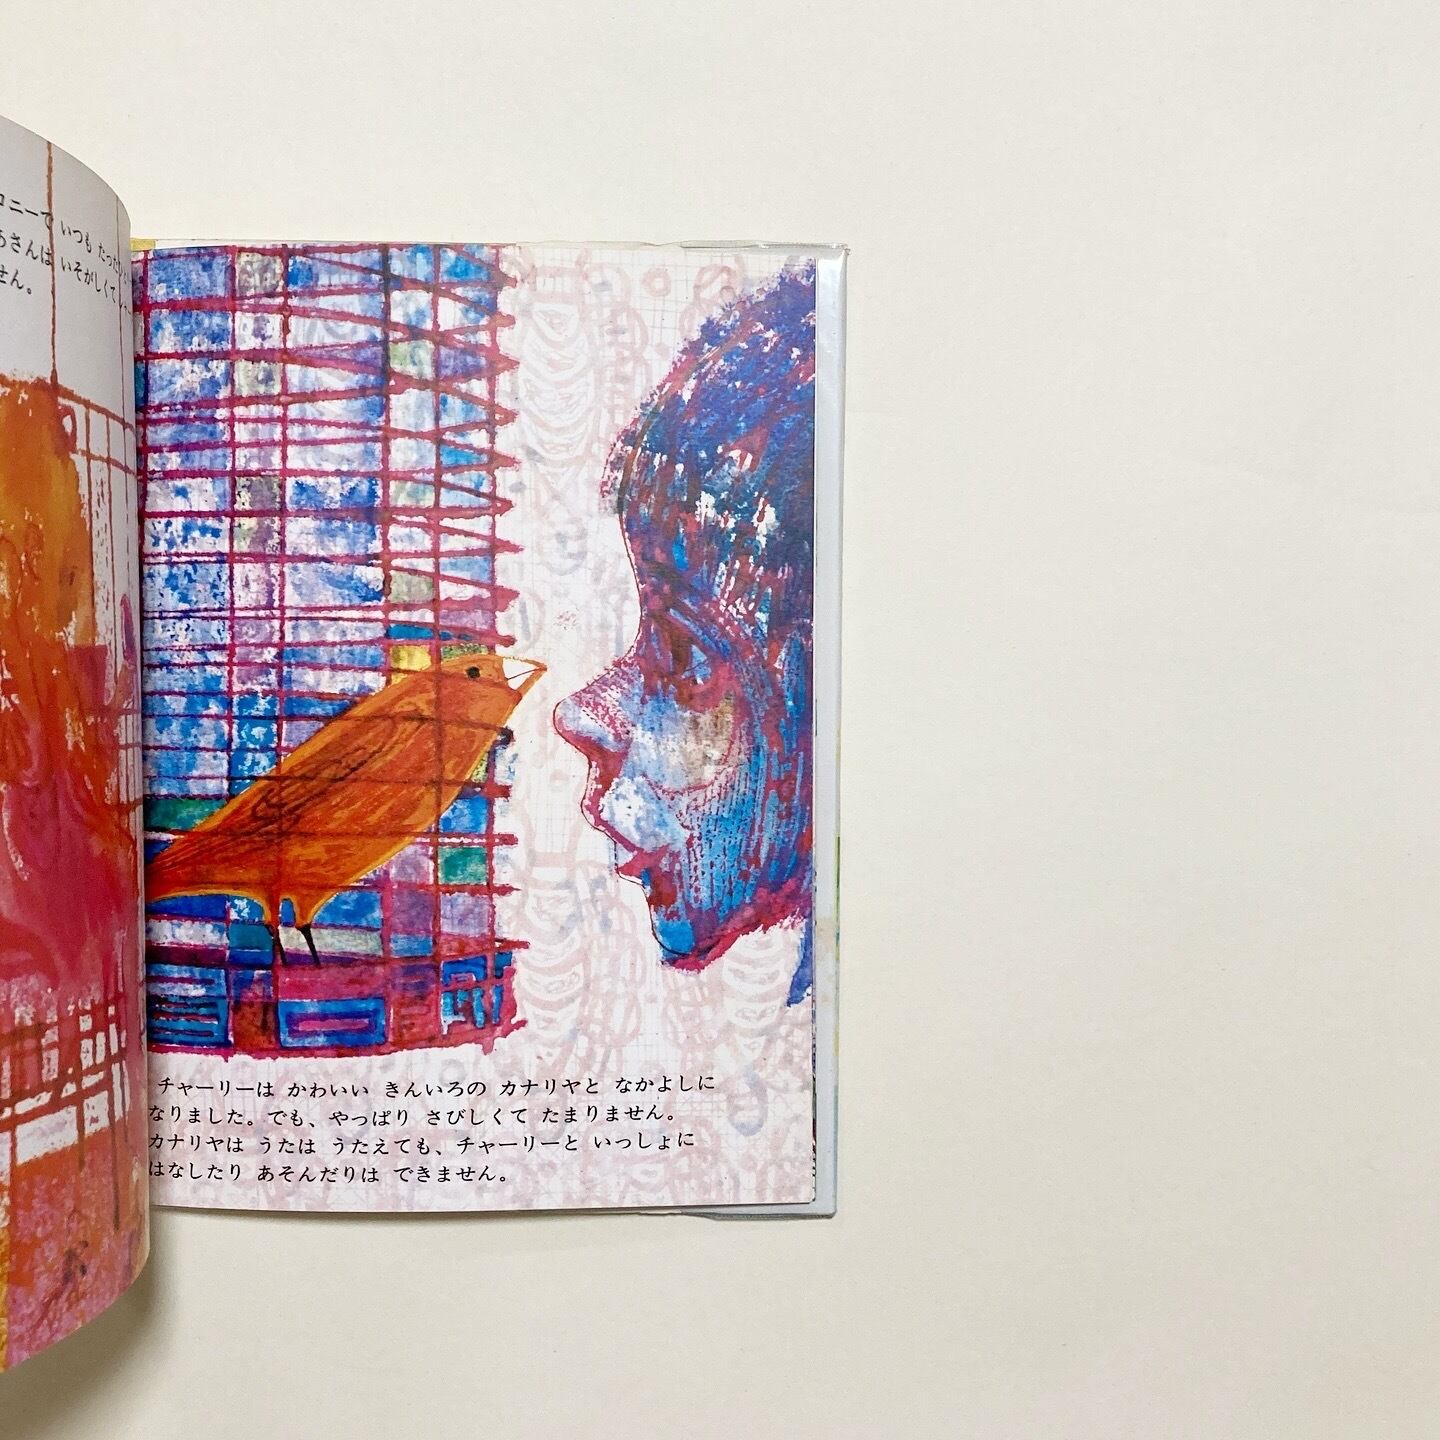 ロニーで いつも たった
あさんは いそがしくて
せん。
チャーリーは かわいい きんいろの カナリヤと なかよしに
なりました。でも、やっぱり さびしくて たまりません。
カナリヤは うたは うたえても、チャーリーと いっしょに
はなしたり あそんだりは できません。